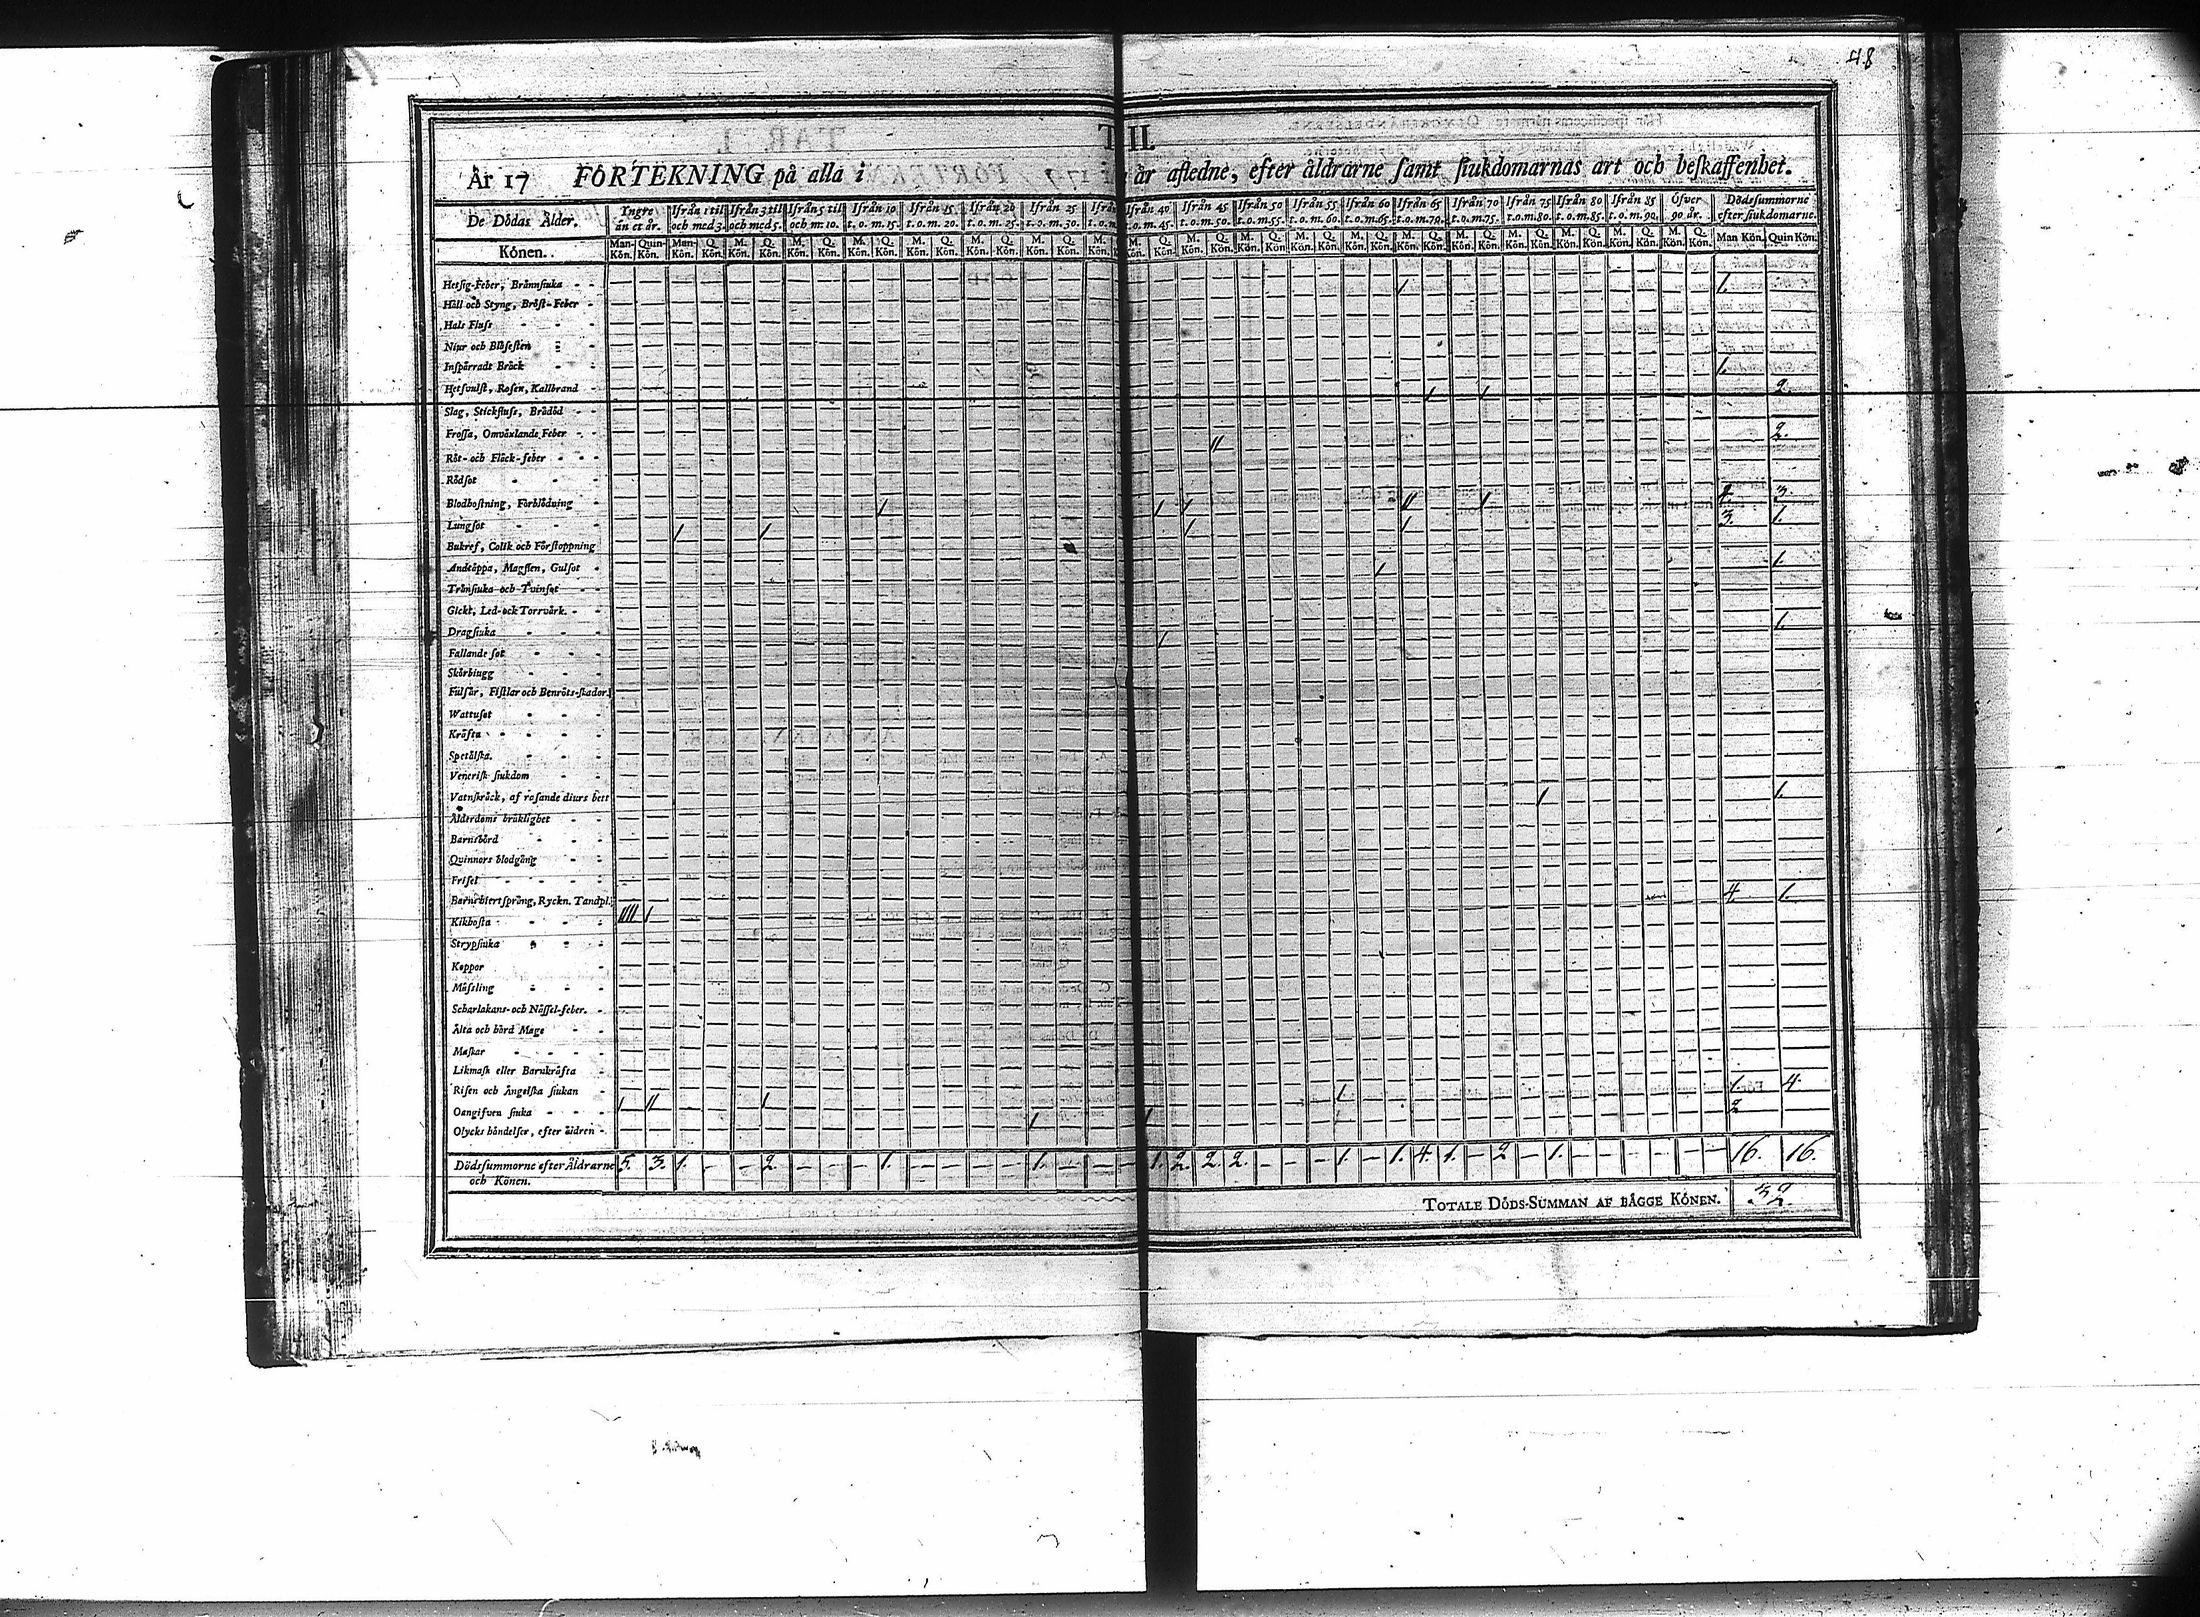 48
T II.
År 17 FÖRTEKNING på alla i år afledne, efter åldrarne samt siukdomarnas art och beskaffenhet.
De Dödas Ålder. Yngre än et år. Ifrån 1 til och med 3. Ifrån 3 til och med 5. Ifrån 5 til och m: 10. Ifrån 10 t. o. m. 15. Ifrån 15 t. o. m. 20. Ifrån 20 t. o. m. 25. Ifrån 25 t. o. m. 30. Ifrån 40 t. o. m. 45. Ifrån 45 t. o. m. 50. Ifrån 50 t. o. m. 55. Ifrån 55 t. o. m. 60. Ifrån 60 t. o. m. 65. Ifrån 65 t. o. m. 70. Ifrån 70 t. o. m. 75. Ifrån 75 t. o. m. 80. Ifrån 80 t. o. m. 85. Ifrån 85 t. o. m. 90. Öfver 90 år. Dödssummorne efter siukdomarne.
Könen. Man-Kön. Quin-Kön. Man-Kön. Q. Kön. M. Kön. Q. Kön. M. Kön. Q. Kön. Man Kön. Quin Kön.
Hetsig-Feber, Brännsiuka 1.
Håll och Styng, Bröst-Feber
Hals Fluss
Niur och Blåsesten
Inspärradt Bråck 1.
Hetsvulst, Rosen, Kallbrand 2.
Slag, Stickfluss, Brådöd
Frossa, Omväxlande Feber 2.
Röt- och Fläck-feber
Rödsot
Blodhostning, Förblödning 3.
Lungsot 3. 1.
Bukref, Colik och Förstoppning
Andtäppa, Magssten, Gulsot 1.
Trånsiuka och Tvinsot
Gickt, Led- ock Torrvärk.
Dragsiuka 1.
Fallande sot
Skörbiugg
Fulsår, Fistlar och Benröts-skador
Wattusot
Kräfta
Spetälska.
Venerisk siukdom
Vatnskräck, af rasande diurs bett 1.
Ålderdoms bräklighet
Barnsbörd
Quinnors blodgång
Frisel
Barnehiertsprång, Ryckn. Tandpl. 4. 1.
Kikhosta
Strypsiuka
Koppor
Mässling
Scharlakans- och Nässel-feber.
Älta och hård Mage
Maskar
Likmask eller Barnkräfta
Risen och Ängelska siukan 1. 4.
Oangifven siuka 2
Olycks händelser, efter sidren
Dödssummorne efter Åldrarne och Könen. 5. 3. 1. - - 2. 1. 1. 1. 2. 2. 2. 1. 1. 4. 1. - 2 - 1. 16. 16.
TOTALE DÖDS-SUMMAN AF BÄGGE KÖNEN. 32.